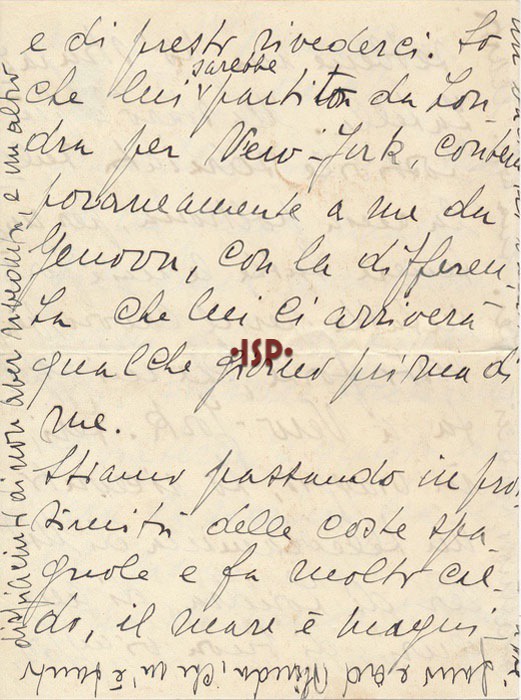 e di presto rivederci. So
che lui sarebbe partito da Lon-
dra per New-York, contem
poraneamente a me da
Genova, con la differen
za che lui ci arriverà
qualche giorno prima di
me.
Stiamo passando in pros
simità delle coste spa
gnole e fa molto cal-
do, il mare è magni
dispiaciuta di non aver riveduta, e un altro
·ISP·